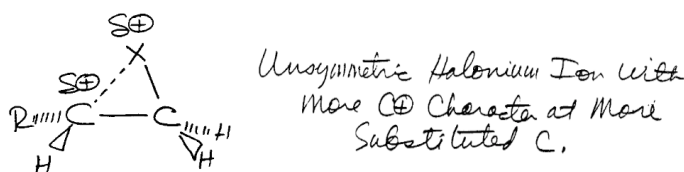 S⊕
S⊕ X
R C C H
H H
Unsymmetric Halonium Ion with
More C⊕ Character at More
Substituted C.